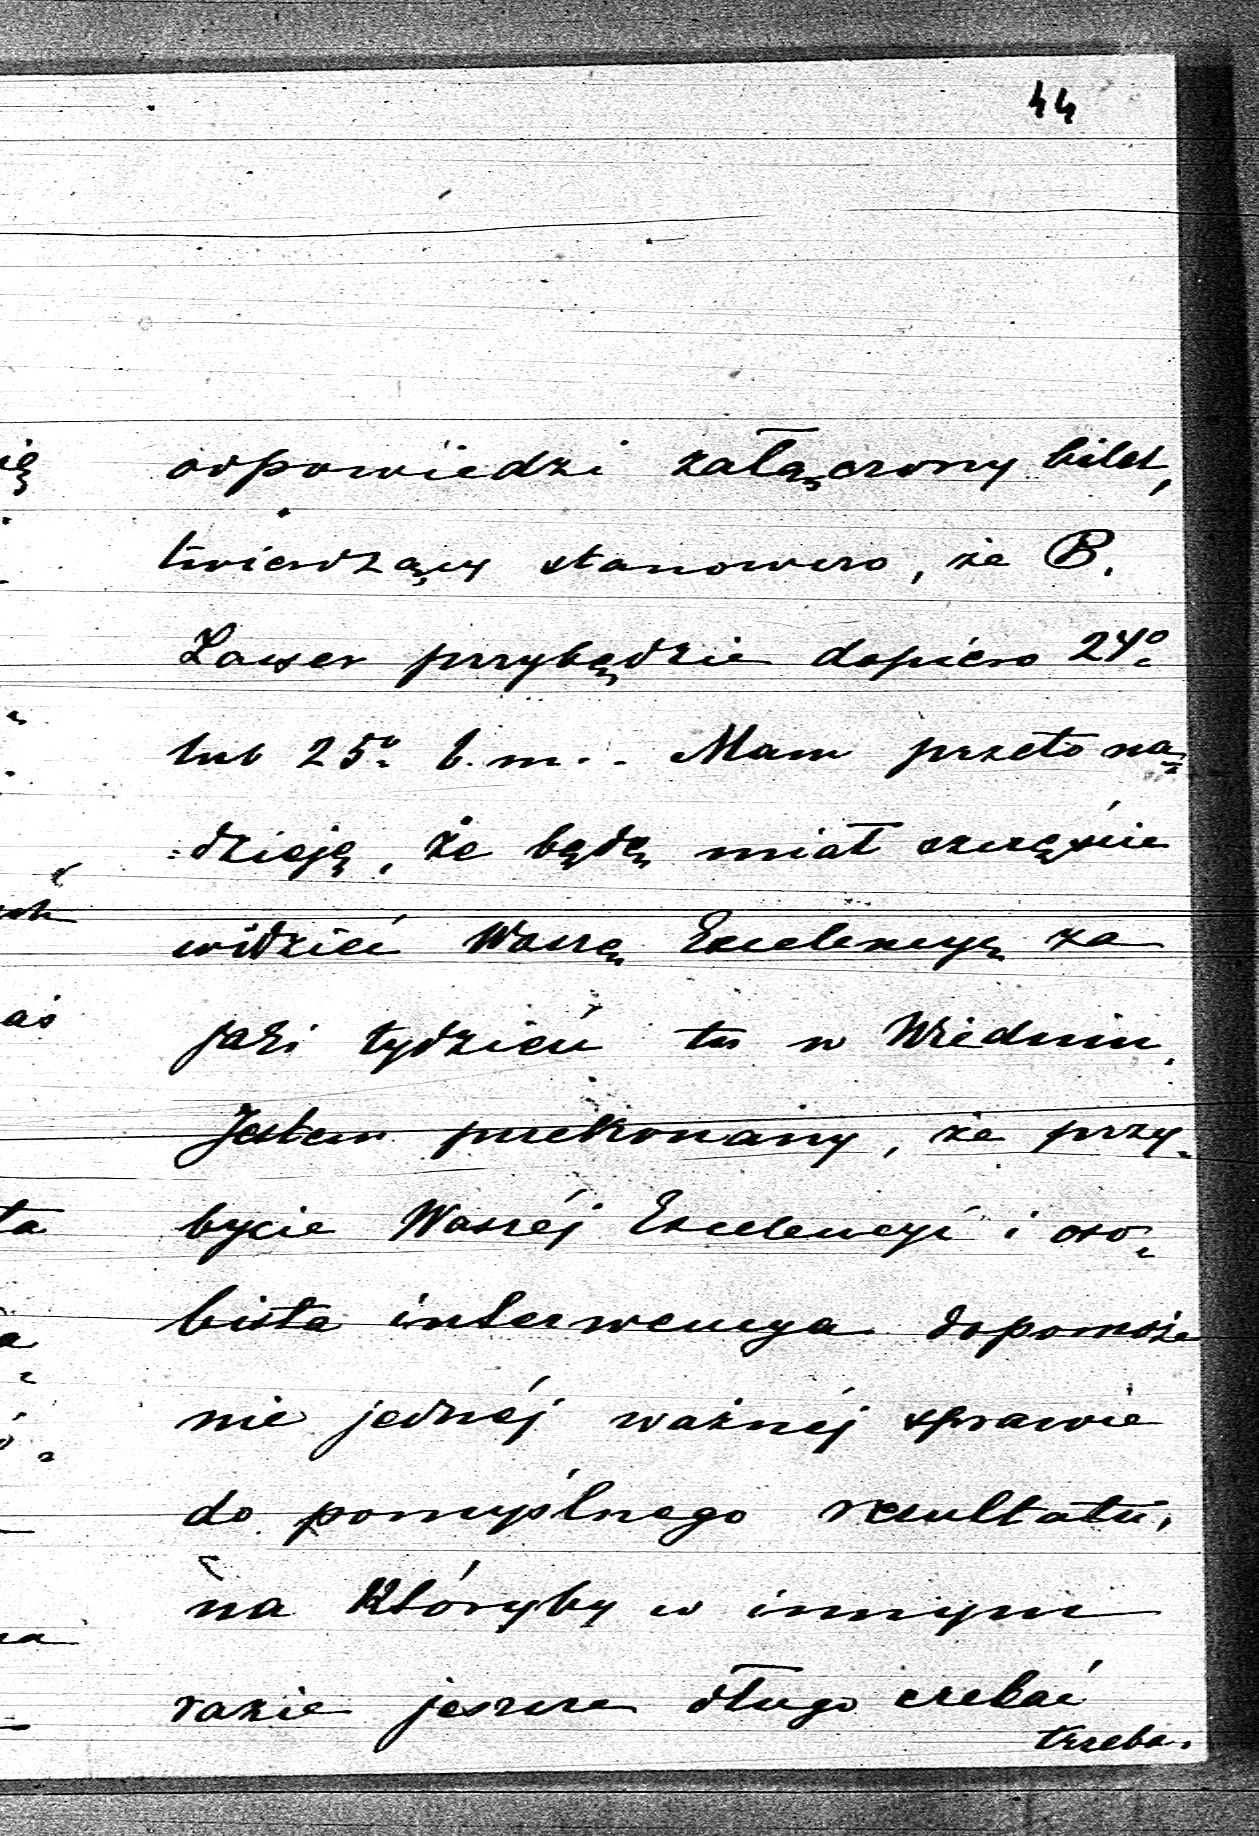 44
odpowiedzi załączony bilet,
twierdzący stanowczo, że B.
Lauer przybędzie dopiero 24º
lub 25º b. m.. Mam przeto na-
=dzieję, że będę miał szczęście
widzieć Waszę Excelencyę za
jaki tydzień tu w Wiedniu.
Jestem przekonany, że przy-
bycie Waszéj Excelencyi i oso-
bista interwencya dopomoże
nie jednéj ważnéj sprawie
do pomyślnego resultatu,
na któryby w innym
razie jeszcze długo czekać
trzeba.